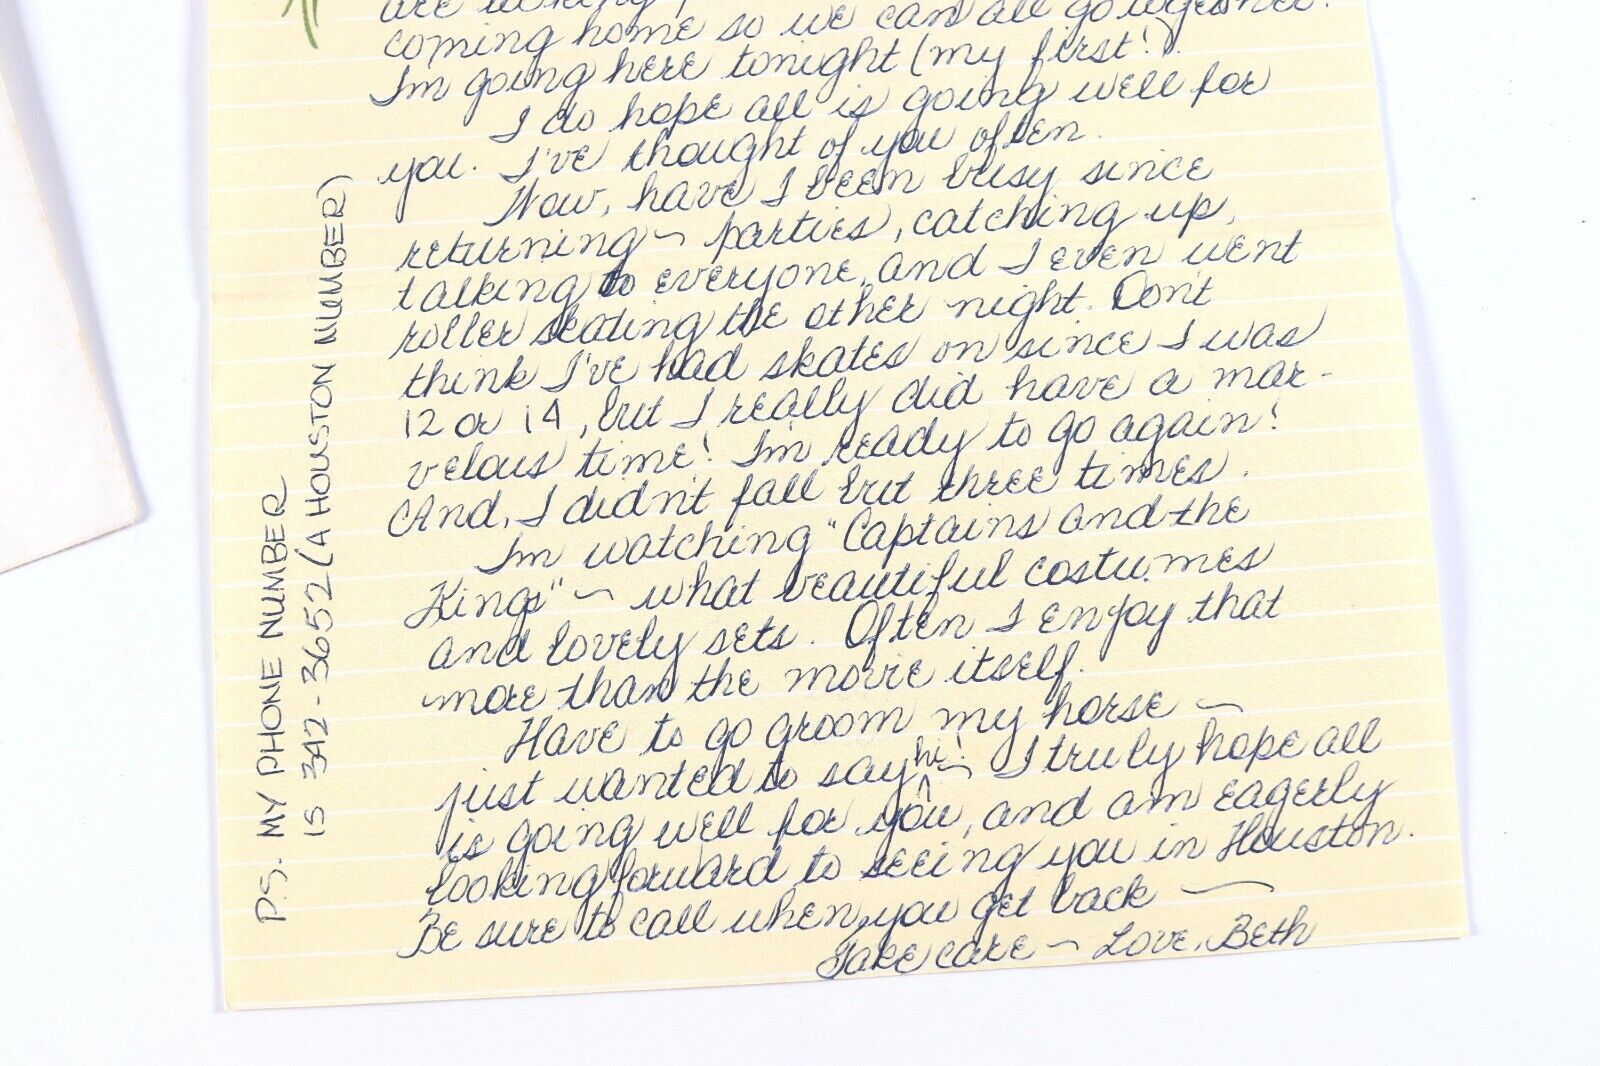 coming home so we can all go together.
I'm going here tonight (my first!).
I do hope all is going well for
you. I've thought of you often.
Wow, have I been busy since
returning ~ parties, catching up,
talking to everyone, and I even went
roller skating the other night. Don't
think I've had skates on since I was
12 or 14, but I really did have a mar-
velous time! I'm ready to go again!
And, I didn't fall but three times.
I'm watching "Captains and the
Kings" ~ what beautiful costumes
and lovely sets. Often I enjoy that
more than the movie itself.
Have to go groom my horse ~
just wanted to say hi! ~ I truly hope all
is going well for you, and am eagerly
looking forward to seeing you in Houston.
Be sure to call when you get back ~
Take care ~ Love, Beth
P.S. MY PHONE NUMBER
IS 342-3652 (A HOUSTON NUMBER)